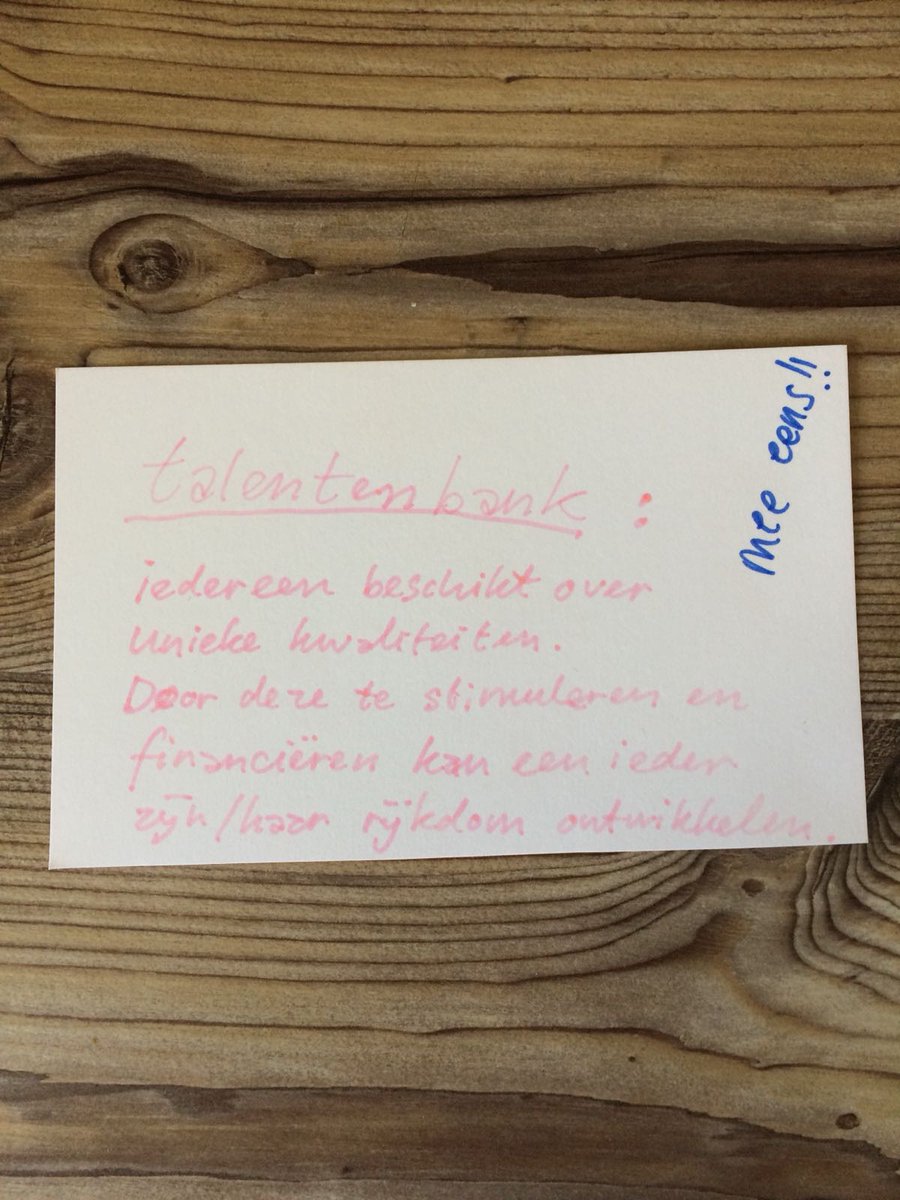 talentenbank :
iedereen beschikt over
unieke kwaliteiten.
Door deze te stimuleren en
financiëren kan een ieder
zijn/haar rijkdom ontwikkelen.
Mee eens!!